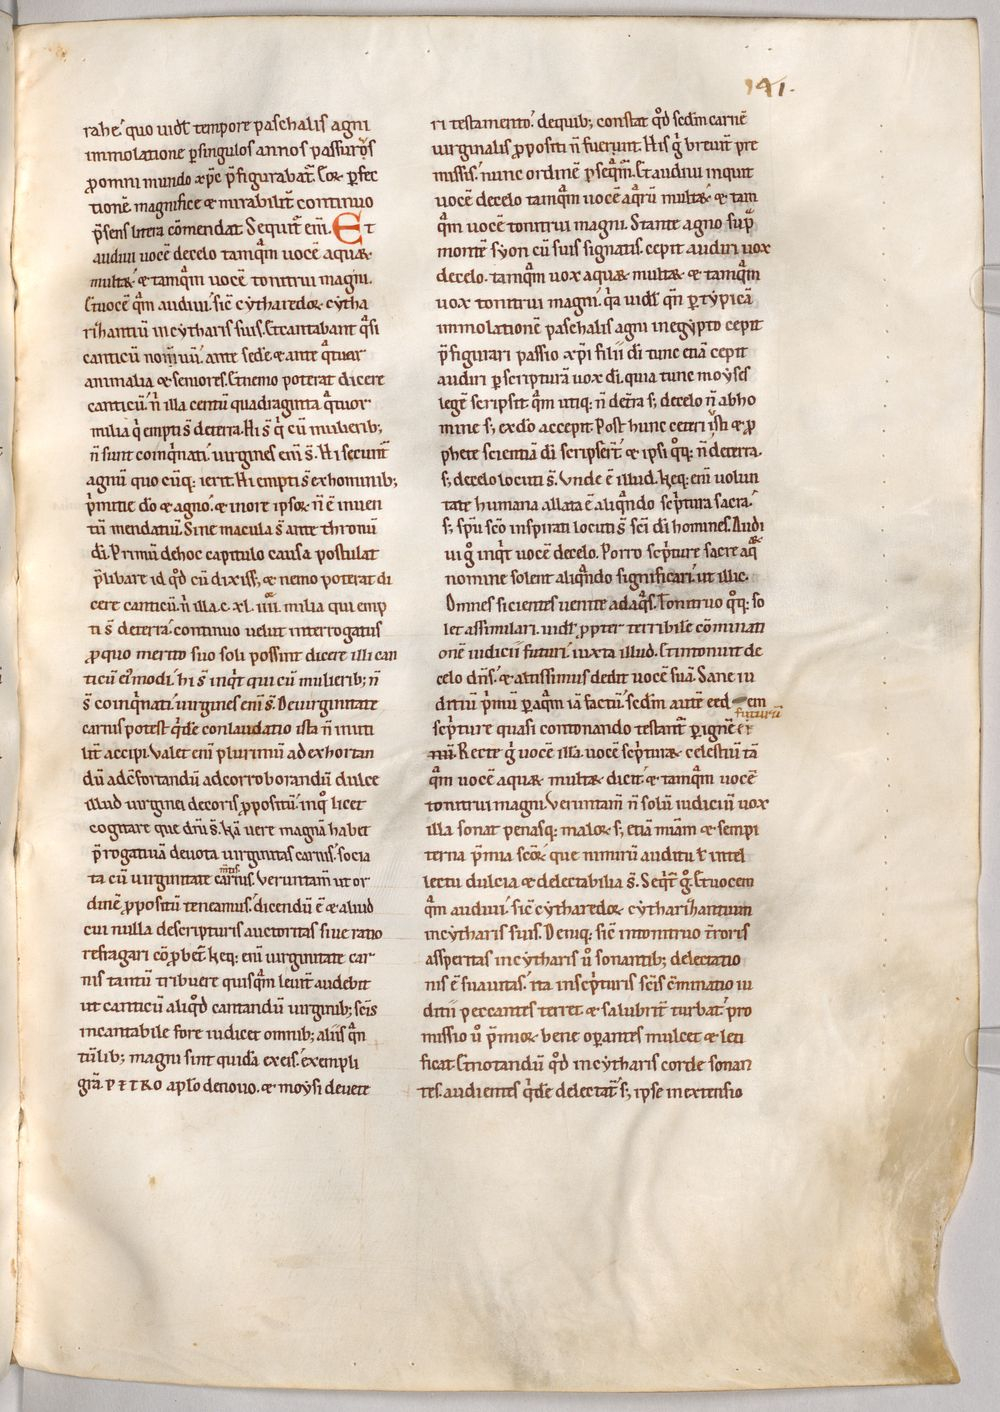 141.
rahẽ. quo uidꝉ tempore paschalis agni
immolatione ꝑ singulos annos passurꝰ
ꝓ omni mundo xp̃c p̃figurabat̃. Coꝝ ꝑfec
tionẽ magnifice & mirabilit̃ continuo
p̃sens littera cõmendat. Sequit̃ eni͂. Et
audiui uocẽ de celo tamqͣm uocẽ aquaꝝ
multaꝝ. & tamqͣm uocẽ tonitrui magni.
Et uocẽ qͣm audiui. sic̃ cytharedoꝝ cytha
rihantiũ in cytharis suis. Et cantabant qͣsi
canticũ nouũ. ante sedẽ & ante qͣtuor
animalia & seniores. Et nemo poterat dicere
canticũ. ñ illa centũ quadraginta qͣtuor
milia qͥ empti s̃ de terra. Hi s̃ qͥ cũ mulierib;
ñ sunt coinqͥnati. uirgines eni͂ s̃. Hi secunt̃
agnũ quo cũq: ierit. Hi empti s̃ ex hominib;
pͥmitie dõ & agno. & in ore ipsoꝝ ñ ẽ inuen
tũ mendatiũ. Sine macula s̃ ante thronũ
di͂. Primũ de hoc capitulo causa postulat
p̃libare id qͦd cũ dixiss&, & nemo poterat di
cere canticũ. ñ illa .c. xl. iiii. milia qui emp
ti s̃ de terra. continuo velut interrogatus
ꝓ quo merito suo soli possint dicere illi can
ticũ ei᷒modi. hi s̃ inqͥt qui cũ mulierib; ñ
s̃ coinqͥnati. uirgines eni͂ s̃. De uirginitate
carnis potest qͥdẽ conlaudatio ista ñ inuti
lit̃ accipi. Valet eni͂ plurimũ ad exhortan
dũ ad c̃fortandũ ad corroborandũ dulce
illud uirginei decoris ꝓpositũ. in qͦ licet
cogitare que dñi s̃. Nã uere magnã habet
p̃rogatiuã deuota uirginitas carnis. socia
ta cũ uirginitate carnis. Veruntam̃ ut or
dinẽ ꝓpositũ teneamus. dicendũ ẽ & aliud
cui nulla de scripturis auctoritas siue ratio
refragari cõꝓbet̃. Neq: eni͂ uirginitate car
nis tantũ tribuere quisqͣm leuit̃ audebit
ut canticũ aliqͦd cantandũ uirginib; scĩs
incantabile fore iudicet omnib; aliis qͣn
tũlib; magni sint quidã ex eis. exempli
grã. PETRO aplõ de nouo. & moysi de uete
ri testamento. de quib; constat qͦd scd̃m carnẽ
uirginalis ꝓpositi ñ fuerunt. His gͥ breuit̃ pre
missis. nunc ordinẽ ꝓseqͣm̃. Et audiui inquit
uocẽ de celo tamqͣm uocẽ aqͣrũ multaꝝ. & tam
qͣm uocẽ tonitrui magni. Stante agno sup̃
montẽ syon cũ suis signatis. cepit audiri uox
de celo. tamqͣm uox aquaꝝ multaꝝ & tamqͣm
uox tonitrui magni. qͥa uidꝉ qñ ꝑ typicã
immolationẽ paschalis agni in egypto cepit
p̃figurari passio xp̃i filii di͂ tunc etiã cepit
audiri ꝑ scripturã uox di͂. quia tunc moyses
legẽ scripsit qͣm utiq: ñ de tr̃a s; de celo ñ ab ho
mine s; ex dõ accepit. Post hunc ceteri isti & ꝓ
phete scientiã di͂ scripser̃t & ipsi qͦq: ñ de terra.
s; de celo locuti s̃. Vnde ẽ illud. Neq: eni͂ uolun
tate humana allata ẽ aliqͣndo scͥptura sacra.
s; sp̃u scõ inspirati locuti s̃ scĩ di͂ homines. Audi
ui gͦ inqͥt uocẽ de celo. Porro scͥpture sacre aqͣꝝ
nomine solent aliqͣndo significari. ut illic.
Omnes sicientes uenite ad aqͣs. Tonitruo qͦq: so
let assimilari. uidꝉ ꝓpter terribilẽ cõminati
onẽ iudicii futuri. iuxta illud. Et intonuit de
celo dñs. & altissimus dedit uocẽ suã. Sane iu
ditiũ pͥmũ ꝑ aqͣm iã factũ. scd̃m autẽ eed em
scͥpture quasi contonando testant̃ ꝑ ignẽ futurũ
Recte gͥ uocẽ illã. uocẽ scͥpturaꝝ celestiũ tã
qͣm uocẽ aquaꝝ multaꝝ dicit. & tamqͣm uocẽ
tonitrui magni. Veruntam̃ ñ solũ iudiciũ uox
illa sonat penasq: maloꝝ s; etiã miãm & sempi
terna p̃mia scõꝝ que nimirũ auditu ł intel
lectu dulcia & delectabilia s̃. Seqͥt̃ gͦ. Et uocem
qͣm audiui. sic̃ cytharedoꝝ cytharihantium
in cytharis suis. Deniq: sic̃ in tonitruo t̃roris
asperitas in cytharis ũ sonantib; delectatio
nis ẽ suauitas. ita in scͥpturis scĩs c̃minatio iu
ditii peccantes terret & salubrit̃ turbat. pro
missio ũ p̃mioꝝ bene operantes mulcet & leti
ficat. Et notandũ qͦd in cytharis corde sonan
tes. audientes qͥdẽ delectat̃ s; ipse in extensio